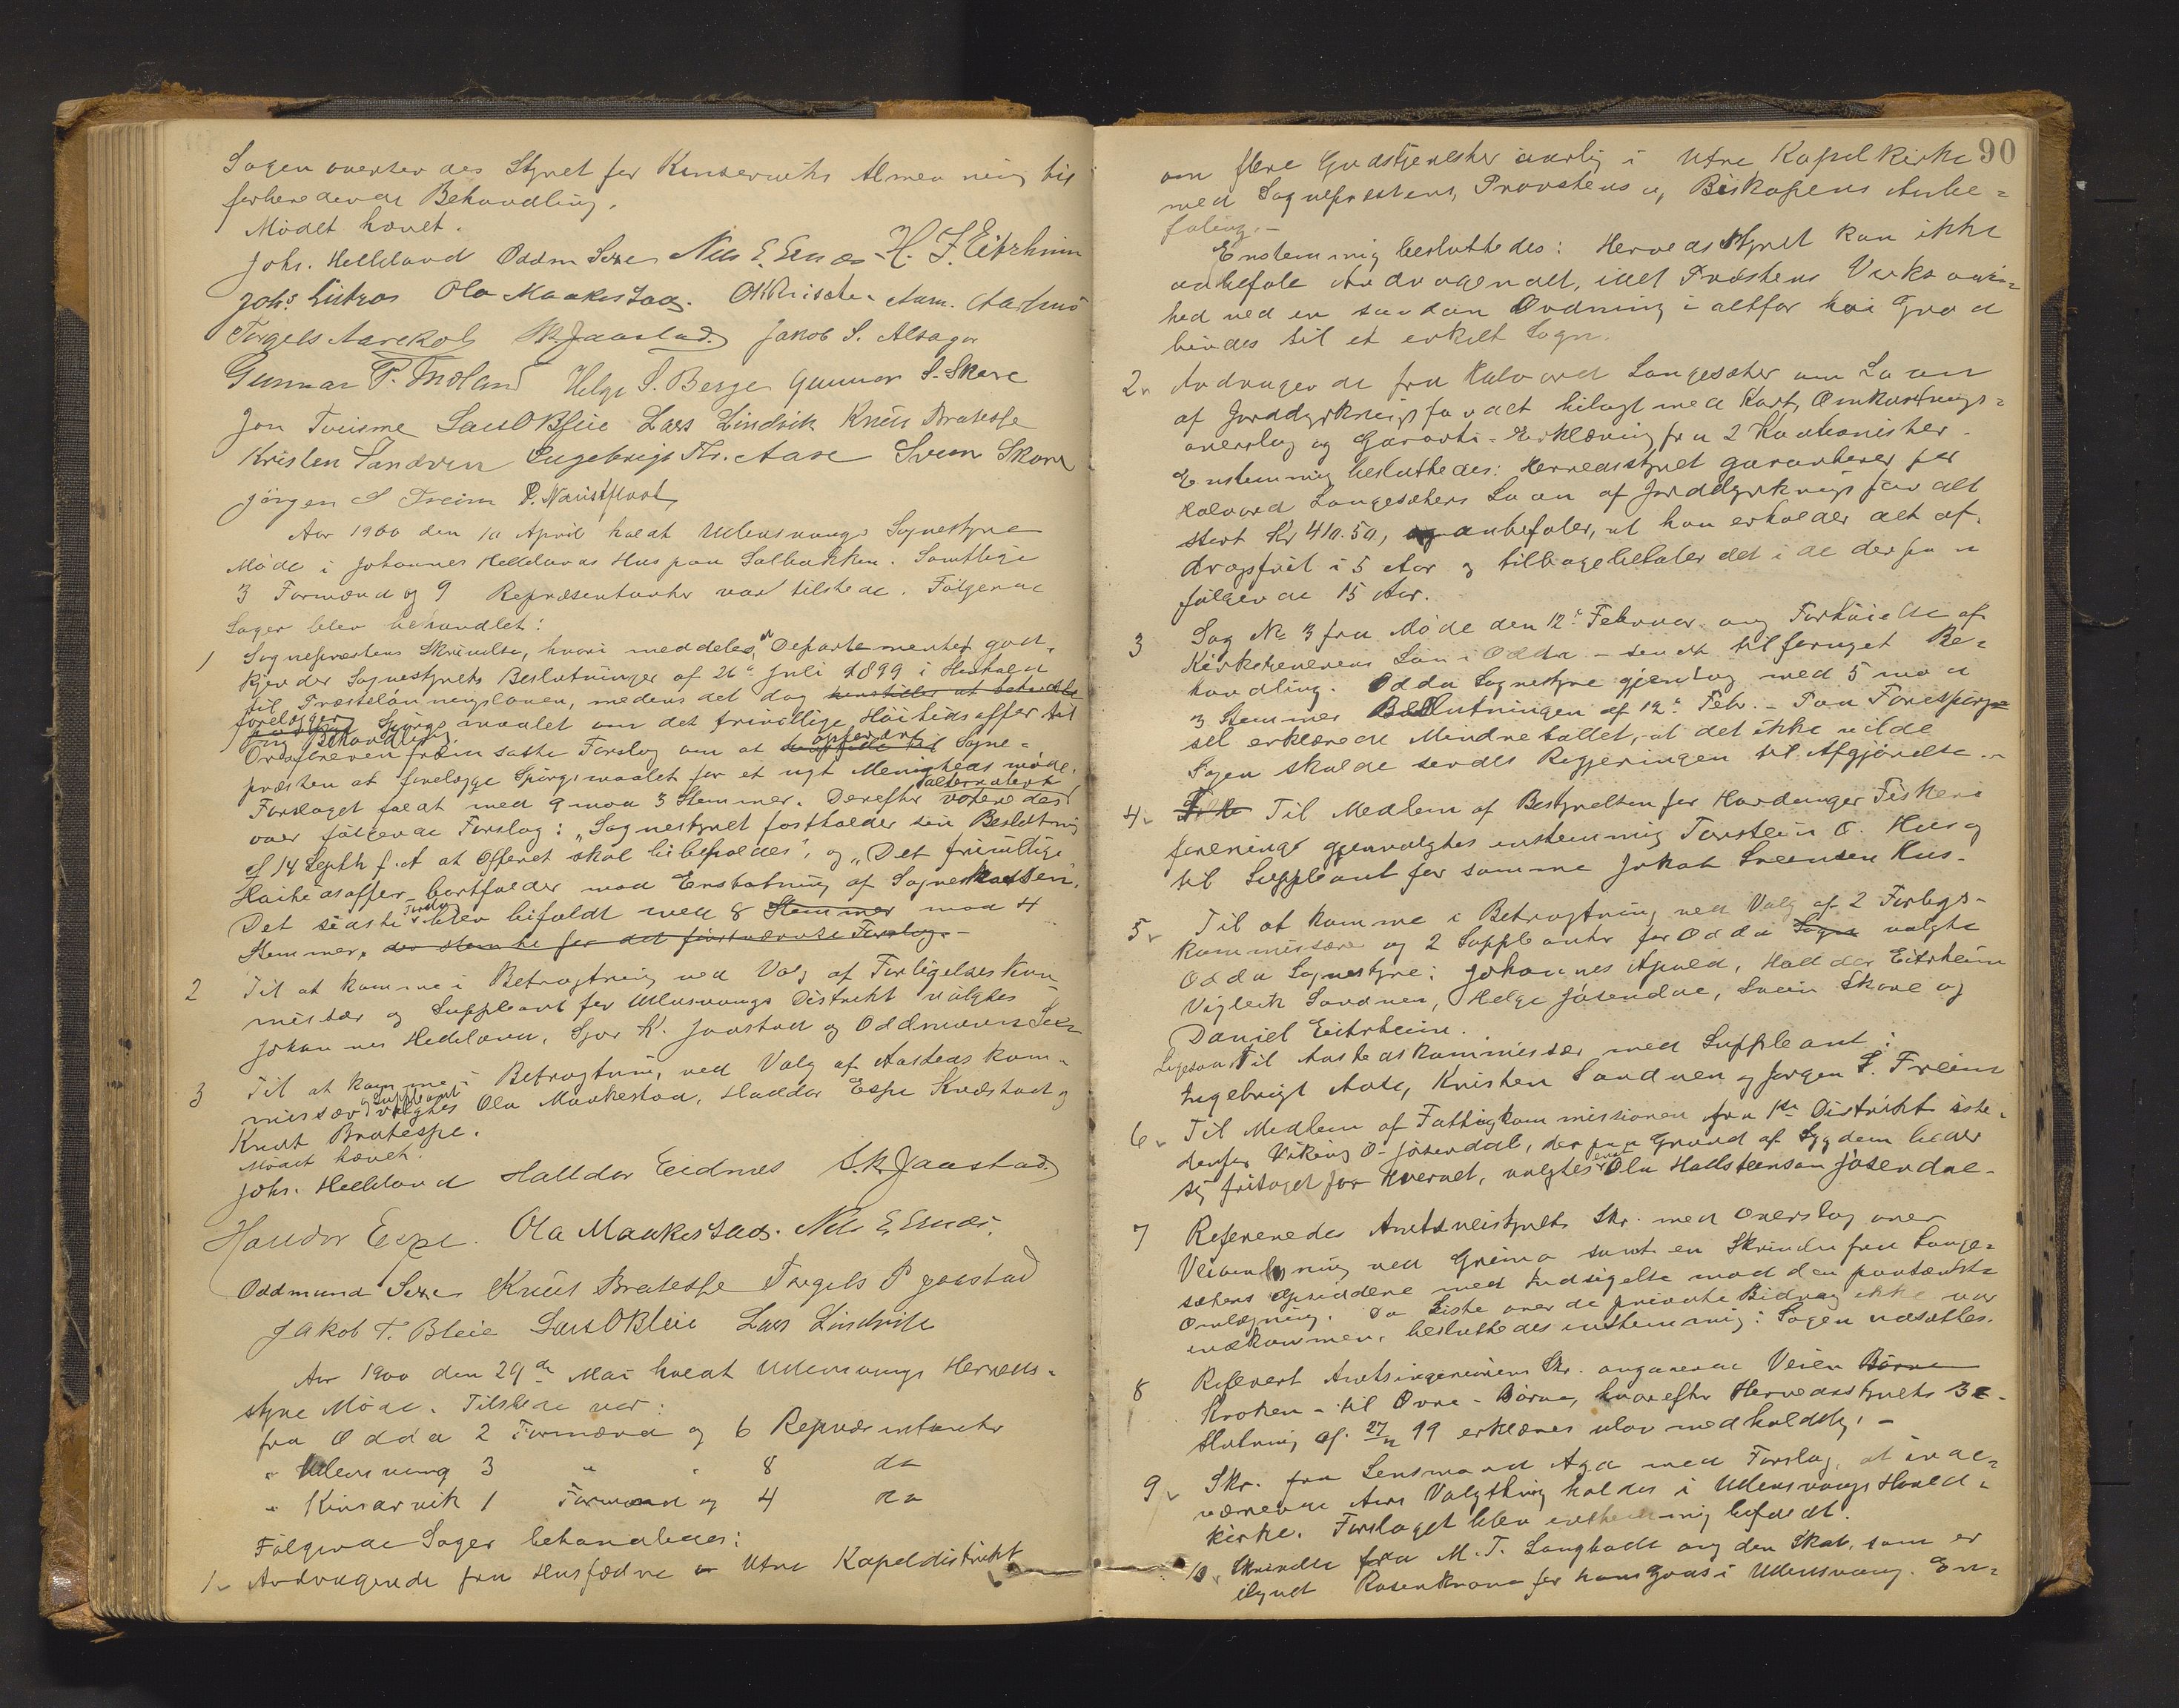 Sagen oversendes Styret for Kinserviks Almenning til
forberedende Behandling.
Mödet hævet.
Johs. Helleland Oddm Sexe Nils E. Ernes H. J. Eitrheim
Johs Lützas Ola Maakestad. Aarhus
Torgels Aarekol S K Jaastad. Jakob S. Alsager
Gunnar P. Freland Helge S. Berge Gunnar S. Skare
Jon Tveisme Lars O Bleie Lars Lindvik Knut Bratespe
Kristen Sandven Ingebrigt Th. Aase Svein Skare
Jörgen S Freim P. Naustflaat
Aar 1900 den 10 April holdt Ullensvangs Sognestyre
Möde i Johannes Hellelands Hus paa Solbakken. Samtlige
3 Formænd og 9 Repræsentanter var tilstede. Fölgende
Sager blev behandlet:
1 Sogneprestens Skrivelse, hvori meddeles, at Departementet god-
kjender Sognestyrets Beslutninger af 26de Juli 1899 i Henhold
til Præstelönningsloven, medens det dog henstilles at
forelægges Spörgsmaalet om det frivillige Höitidsoffer til
ny Behandling.
Ordföreren fremsatte Forslag om at opfordre Sogne-
præsten at forelægge Spörgsmaalet for et nyt Menigheds möde.
Forslaget faldt med 9 mod 3 Stemmer. Derefter voteredes alternativt
over fölgende Forslag: "Sognestyret fastholder sin Beslutning
af 14 Septbr f. A at Offeret skal bibeholdes", og "Det frivillige
Höitidsoffer bortfalder mod Erstatning af Sognekassen".
Det sidste Forslag blev bifaldt med 8 Stemmer mod 4
Stemmer, der stemte for det förstnævnte Forslag.-
2 Til at komme i Betragtning ved Valg af Forligelseskom-
missær og Suppleant for Ullensvangs Distrikt valgtes
Johannes Helleland, Sjur K. Jaastad og Oddmund Sexe
3 Til at komme i Betragtning ved Valg af Aastedskom-
missær og Suppleant valgtes Ola Maakestad, Haldor Espe Kvæstad og
Knut Bratespe.
Mödet hævet.
Johs. Helleland Halldor Eidnes S.K. Jaastad
Haldor Espe. Ola Maakestad. Nils E Ernes.
Oddmund Sexe Knut Bratespe Torgels P Jaastad
Jakob T. Bleie Lars O Bleie Lars Lindvik
Aar 1900 den 29de Mai holdt Ullensvangs Herreds-
styre Möde. Tilstede var:
fra Odda 2 Formænd og 6 Repræsentanter
" Ullensvang 3 " " 8 do
" Kinsarvik 1 Formand og 4 do
Fölgende Sager behandledes:
1. Andragende fra Husfædre i Utne Kapeldistrikt
90
om flere Gudstjenester aarlig i Utne Kapelkirke
med Sogneprestens, Provstens og Biskopens Anbe-
faling.-
Enstemmig besluttedes: Herredsstyret kan ikke
anbefale Andragendet, idet Præstens Virksom-
hed ved en saadan Ordning i altfor höi Grad
bindes til et enkelt Sogn.
2. Andragende fra Halvard Langesæter om Laan
af Jorddyrkningsfondet bilagt med Kart, Omkostnings-
overslag og Garanti-Erklæring fra 2 Kautionister.
Enstemmig besluttedes: Herredsstyret garanterer for
Halvard Langesæters Laan af Jorddyrkningsfondet
stort Kr 410.50, og anbefaler, at han erholder det af-
dragsfrit i 5 Aar og tilbagebetaler det i de derpaa
fölgende 15 Aar.
3 Sag No 3 fra Möde den 12te Februar ang Forhöielse af
Kirketjenerens Lön i Odda - sendt til fornyet Be-
handling. Odda Sognestyre gjentog med 5 mod
3 Stemmer Beslutningen af 12te Feb. - Paa Forespörg-
sel erklærede Mindretallet, at det ikke vilde
Sagen skulde sendes Regjeringen til Afgjörelse.-
4. Til Medlem af Bestyrelsen for Hardanger Fiskeri
forenings gjenvalgtes enstemmig Torstein O. Hus og
til Suppleant for samme Jakob Sveinsen Hus.
5. Til at komme i Betragtning ved Valg af 2 Forligs-
kommissærer og 2 Suppleanter for Odda Sogn valgte
Odda Sognestyre: Johannes Apold, Halldor Eitrheim
Vigleik Sandven, Helge Jösendal, Svein Skare og
Daniel Eitrheim.
Ligesaa til Aastedskommissær med Suppleant:
Ingebrigt Aase, Kristen Sandven og Jörgen S. Freim
6. Til Medlem af Fattigkommissionen fra 1ste Distrikt iste-
denfor Viking O. Jösendal, der paa Grund af Sygdom beder
sig fritaget for Hvervet, valgtes enst Ola Hallsteinson Jösendal.
7 Refereredes Amtsveistyrets Skr. med Overslag over
Veiomlægning ved Greima samt en Skrivelse fra Lange-
sæters Opsiddere med Indsigelse mod den paatænkte
Omlægning. Da Liste over de private Bidrag ikke var
indkommen, besluttedes enstemmig: Sagen udsættes.
8 Refereret Amtsingeniörens Skr. angaaende Veien Börve
Kroken - til Övre-Börve, hvorefter Herredsstyrets Be-
slutning af 27/11 99 erklæres ulovmedholdelig.-
9. Skr. fra Lensmand Aga med Forslag, at inde-
værende Aars Valgthing holdes i Ullensvangs Hoved-
kirke. Forslaget blev enstemmig bifaldt.
10. Skrivelse fra M. T. Langballe ang den Skat, som er
ilignet Rosenkrone for hans Gods i Ullensvang. En-